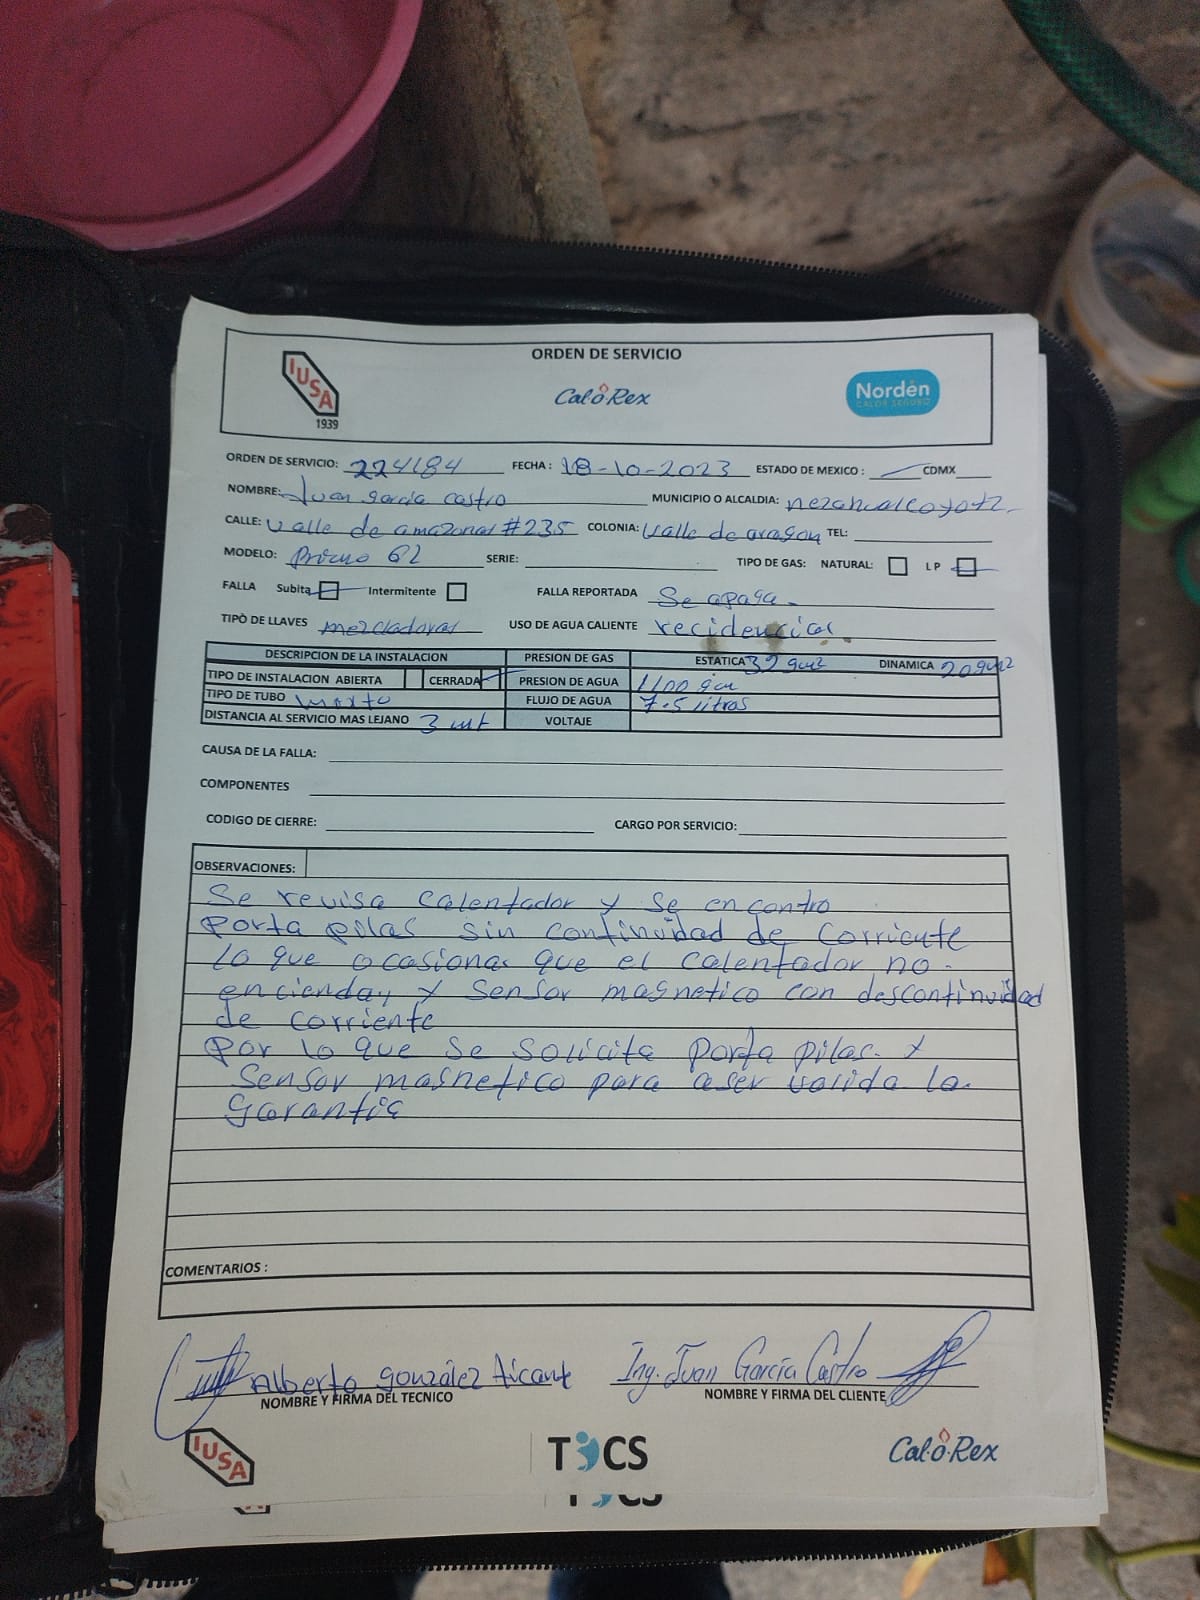 ORDEN DE SERVICIO
IUSA
1939
Cal-o-Rex
Norden
CALOR SEGURO
ORDEN DE SERVICIO: 224184 FECHA : 18-10-2023 ESTADO DE MEXICO : CDMX
NOMBRE: Juan garcia castro MUNICIPIO O ALCALDIA: nezahualcoyotl
CALLE: Valle de amazonas #235 COLONIA: Valle de aragon TEL:
MODELO: SERIE: TIPO DE GAS: NATURAL: LP
FALLA Subita Intermitente FALLA REPORTADA Se apaga.
TIPO DE LLAVES mezcladoras USO DE AGUA CALIENTE recidencial
DESCRIPCION DE LA INSTALACION PRESION DE GAS ESTATICA DINAMICA
TIPO DE INSTALACION ABIERTA CERRADA PRESION DE AGUA
TIPO DE TUBO FLUJO DE AGUA 7.5 litros
DISTANCIA AL SERVICIO MAS LEJANO 3 mt VOLTAJE
CAUSA DE LA FALLA:
COMPONENTES
CODIGO DE CIERRE: CARGO POR SERVICIO:
OBSERVACIONES:
Se revisa calentador y se encontro
porta pilas sin continuidad de corriente
lo que ocasiona que el calentador no
encienda, y sensor magnetico con descontinuidad
de corriente
por lo que se solicita porta pilas y
sensor magnetico para aser valida la
garantia
COMENTARIOS :
Alberto gonzález Ing. Juan García Castro
NOMBRE Y FIRMA DEL TECNICO NOMBRE Y FIRMA DEL CLIENTE
IUSA TICS Cal-o-Rex